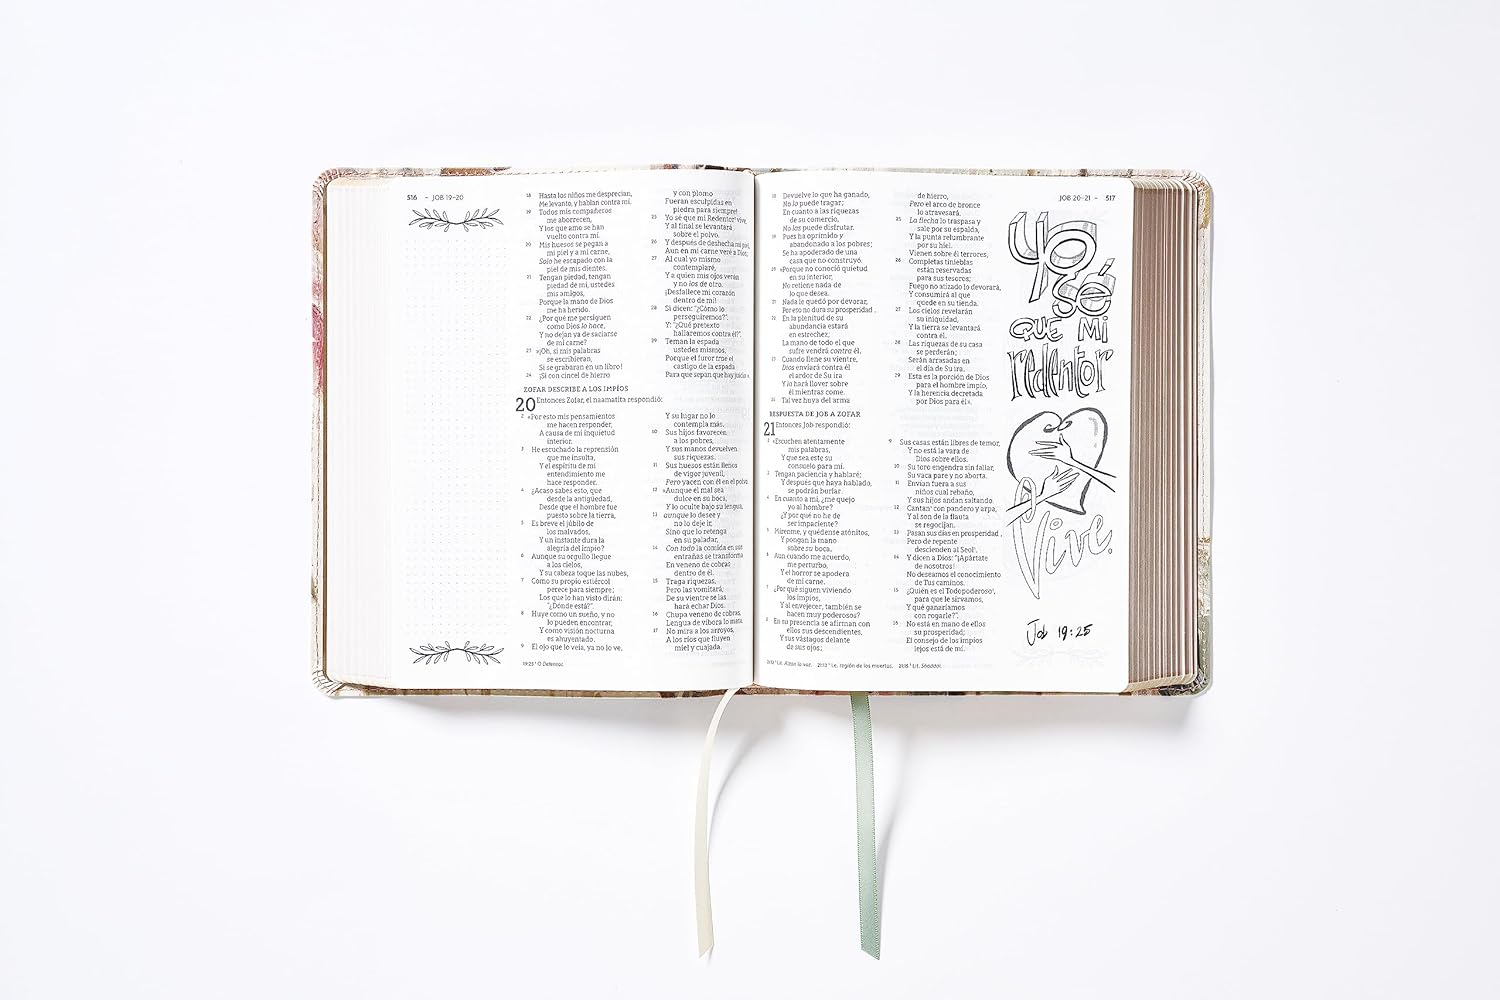 516 ~ JOB 19–20
18 Hasta los niños me desprecian,
Me levanto, y hablan contra mí.
19 Todos mis compañeros
me aborrecen,
Y los que amo se han
vuelto contra mí.
20 Mis huesos se pegan a
mi piel y a mi carne,
Solo he escapado con la
piel de mis dientes.
21 Tengan piedad, tengan
piedad de mí, ustedes
mis amigos,
Porque la mano de Dios
me ha herido.
22 ¿Por qué me persiguen
como Dios lo hace,
Y no dejan ya de saciarse
de mi carne?
23 »¡Oh, si mis palabras
se escribieran,
Si se grabaran en un libro!
24 ¡Si con cincel de hierro
y con plomo
Fueran esculpidas en
piedra para siempre!
25 Yo sé que mi Redentor¹ vive,
Y al final se levantará
sobre el polvo.
26 Y después de deshecha mi piel,
Aun en mi carne veré a Dios;
27 Al cual yo mismo
contemplaré,
Y a quien mis ojos verán
y no los de otro.
¡Desfallece mi corazón
dentro de mí!
28 Si dicen: "¿Cómo lo
perseguiremos?".
Y: "¿Qué pretexto
hallaremos contra él?".
29 Teman la espada
ustedes mismos,
Porque el furor trae el
castigo de la espada
Para que sepan que hay juicio».
ZOFAR DESCRIBE A LOS IMPÍOS
20 Entonces Zofar, el naamatita respondió:
2 «Por esto mis pensamientos
me hacen responder,
A causa de mi inquietud
interior.
3 He escuchado la reprensión
que me insulta,
Y el espíritu de mi
entendimiento me
hace responder.
4 ¿Acaso sabes esto, que
desde la antigüedad,
Desde que el hombre fue
puesto sobre la tierra,
5 Es breve el júbilo de
los malvados,
Y un instante dura la
alegría del impío?
6 Aunque su orgullo llegue
a los cielos,
Y su cabeza toque las nubes,
7 Como su propio estiércol
perece para siempre;
Los que lo han visto dirán:
"¿Dónde está?".
8 Huye como un sueño, y no
lo pueden encontrar,
Y como visión nocturna
es ahuyentado.
9 El ojo que lo veía, ya no lo ve,
Y su lugar no lo
contempla más.
10 Sus hijos favorecen
a los pobres,
Y sus manos devuelven
sus riquezas.
11 Sus huesos están llenos
de vigor juvenil,
Pero yacen con él en el polvo.
12 »Aunque el mal sea
dulce en su boca,
Y lo oculte bajo su lengua,
13 aunque lo desee y
no lo deje ir,
Sino que lo retenga
en su paladar,
14 Con todo la comida en sus
entrañas se transforma
En veneno de cobras
dentro de él.
15 Traga riquezas,
Pero las vomitará;
De su vientre se las
hará echar Dios.
16 Chupa veneno de cobras,
Lengua de víbora lo mata.
17 No mira a los arroyos,
A los ríos que fluyen
miel y cuajada.
19:25 ¹ O Defensor.
JOB 20–21 ~ 517
18 Devuelve lo que ha ganado,
No lo puede tragar;
En cuanto a las riquezas
de su comercio,
No las puede disfrutar.
19 Pues ha oprimido y
abandonado a los pobres;
Se ha apoderado de una
casa que no construyó.
20 »Porque no conoció quietud
en su interior,
No retiene nada de
lo que desea.
21 Nada le quedó por devorar,
Por eso no dura su prosperidad.
22 En la plenitud de su
abundancia estará
en estrechez;
La mano de todo el que
sufre vendrá contra él.
23 Cuando llene su vientre,
Dios enviará contra él
el ardor de Su ira
Y la hará llover sobre
él mientras come.
24 Tal vez huya del arma
de hierro,
Pero el arco de bronce
lo atravesará.
25 La flecha lo traspasa y
sale por su espalda,
Y la punta relumbrante
por su hiel.
Vienen sobre él terrores,
26 Completas tinieblas
están reservadas
para sus tesoros;
Fuego no atizado lo devorará,
Y consumirá al que
quede en su tienda.
27 Los cielos revelarán
su iniquidad,
Y la tierra se levantará
contra él.
28 Las riquezas de su casa
se perderán;
Serán arrasadas en
el día de Su ira.
29 Esta es la porción de Dios
para el hombre impío,
Y la herencia decretada
por Dios para él».
RESPUESTA DE JOB A ZOFAR
21 Entonces Job respondió:
2 «Escuchen atentamente
mis palabras,
Y que sea este su
consuelo para mí.
3 Tengan paciencia y hablaré;
Y después que haya hablado,
se podrán burlar.
4 En cuanto a mí, ¿me quejo
yo al hombre?
¿Y por qué no he de
ser impaciente?
5 Mírenme, y quédense atónitos,
Y pongan la mano
sobre su boca.
6 Aun cuando me acuerdo,
me perturbo,
Y el horror se apodera
de mi carne.
7 ¿Por qué siguen viviendo
los impíos,
Y al envejecer, también se
hacen muy poderosos?
8 En su presencia se afirman con
ellos sus descendientes,
Y sus vástagos delante
de sus ojos;
9 Sus casas están libres de temor,
Y no está la vara de
Dios sobre ellos.
10 Su toro engendra sin fallar,
Su vaca pare y no aborta.
11 Envían fuera a sus
niños cual rebaño,
Y sus hijos andan saltando.
12 Cantan¹ con pandero y arpa,
Y al son de la flauta
se regocijan.
13 Pasan sus días en prosperidad,
Pero de repente
descienden al Seol¹.
14 Y dicen a Dios: "¡Apártate
de nosotros!
No deseamos el conocimiento
de Tus caminos.
15 ¿Quién es el Todopoderoso¹,
para que le sirvamos,
Y qué ganaríamos
con rogarle?".
16 No está en mano de ellos
su prosperidad;
El consejo de los impíos
lejos está de mí.
21:12 ¹ Lit. Alzan la voz. 21:13 ¹ I.e. región de los muertos. 21:15 ¹ Lit. Shaddai.
yo
sé
QUE MI
redentor
Vive.
Job 19:25